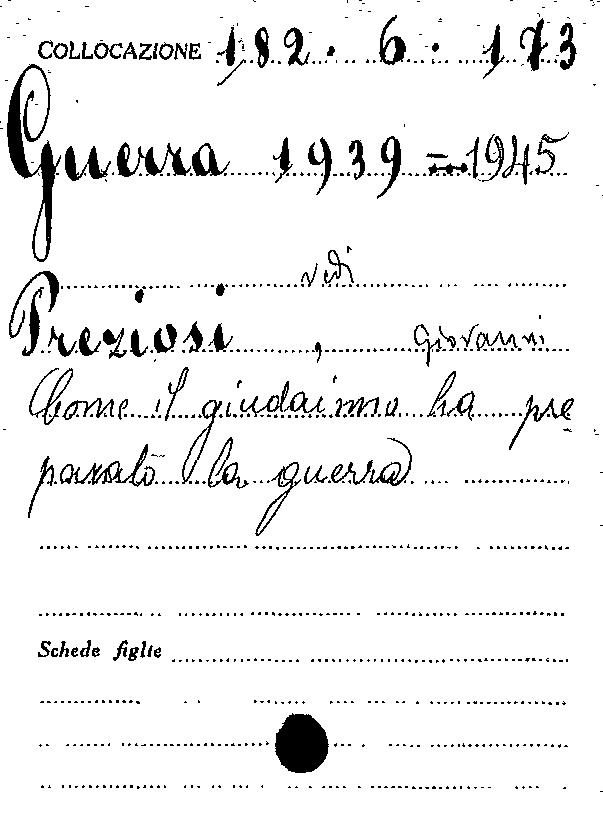 COLLOCAZIONE 182. 6. 173
Guerra 1939=1945
vedi
Preziosi, Giovanni
Come il giudaismo ha pre
parato la guerra
Schede figlie